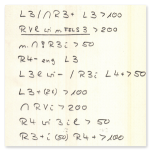 L3/∩R3+ L3>100
RVL wi m FOLS 3 >200
m.∩ºR3i >50
R4- eng L3
L3e wi- /R3i L4+>50
L3+(R1) >100
∩RVi >200
R4 wi 3il >50
R3+i (50) R4+ >100